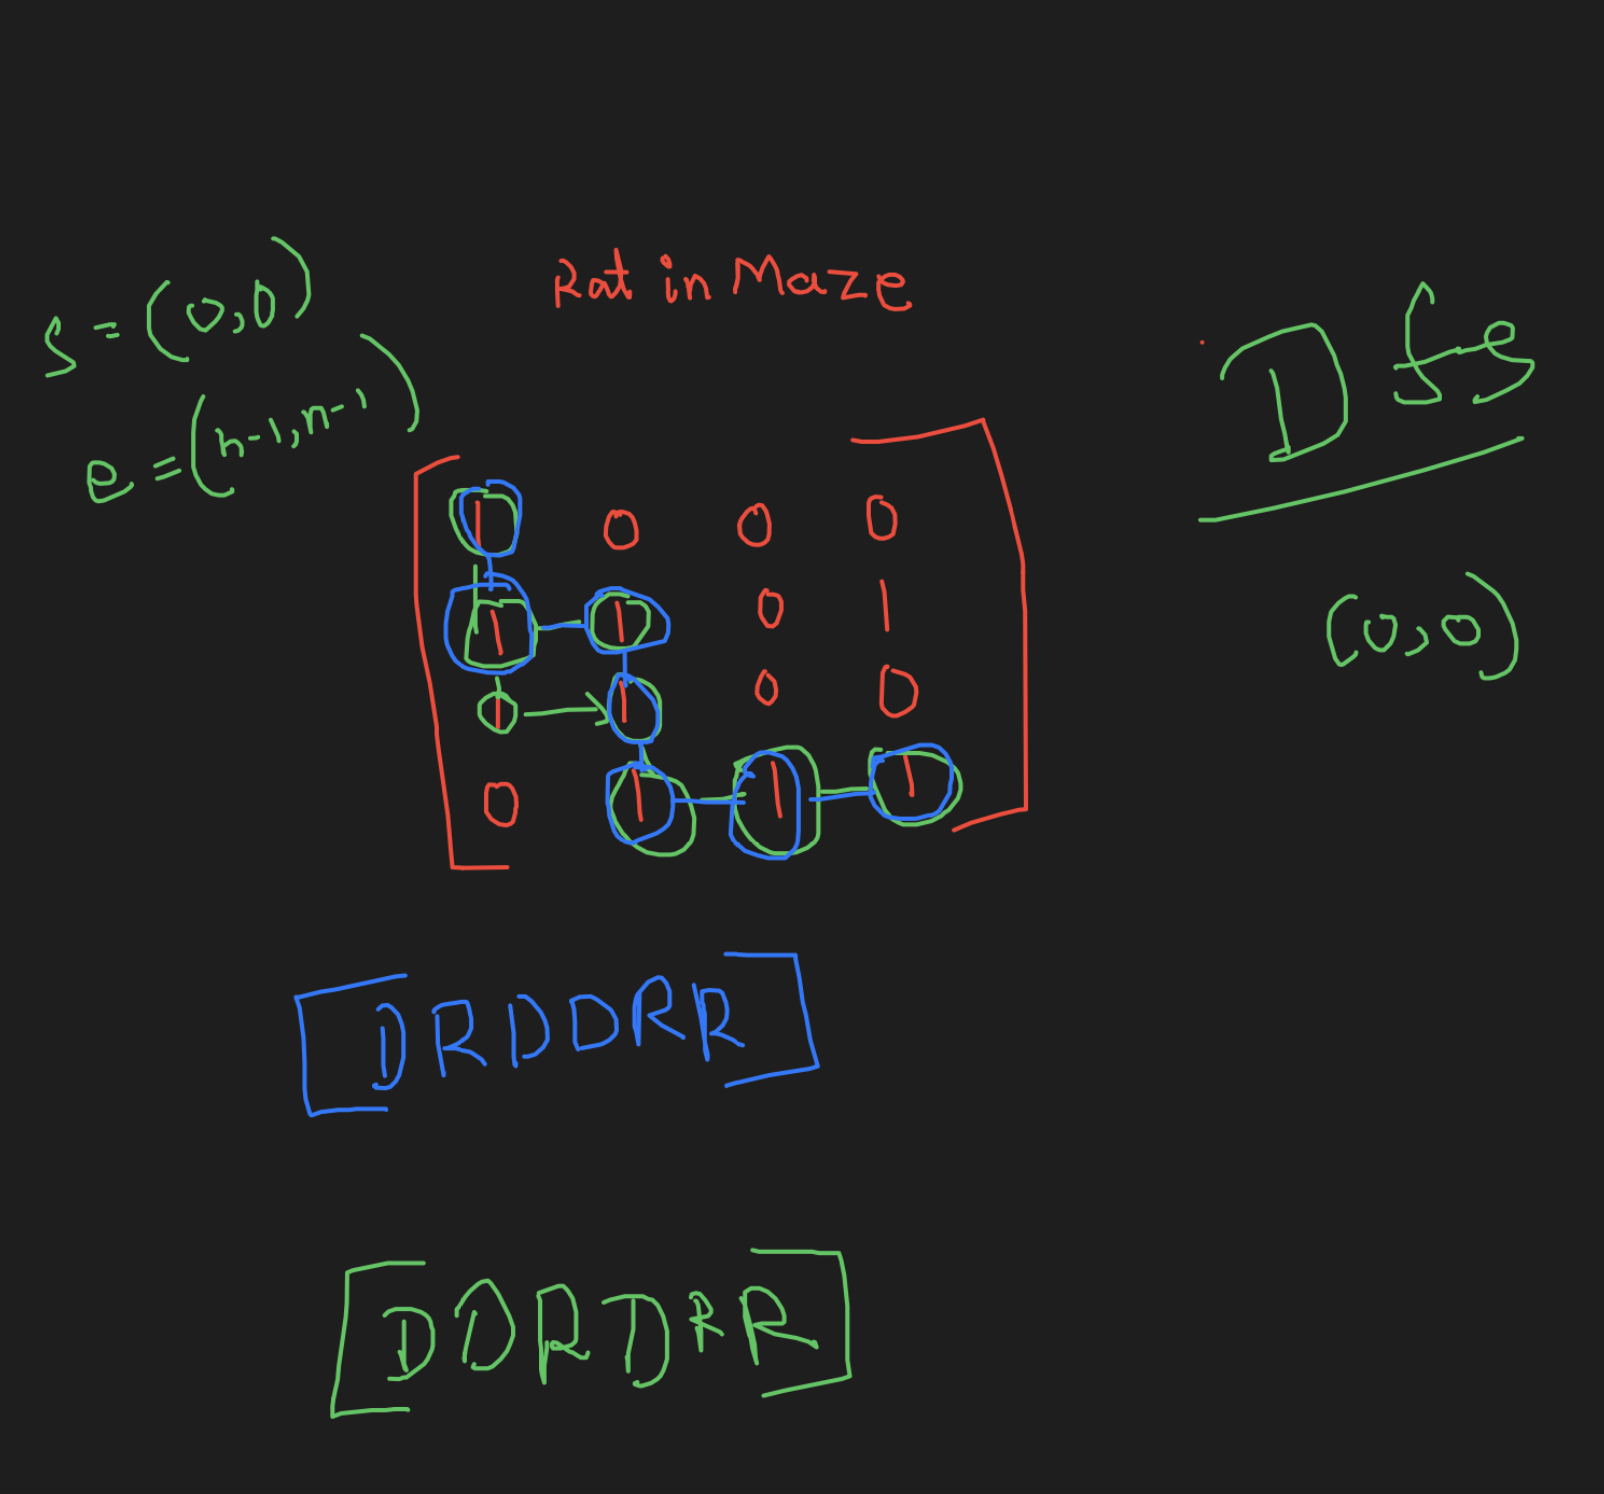 Rat in Maze
S = (0,0)
e = (n-1, n-1)
Dfs
(0,0)
1 0 0 0
1 1 0 1
1 1 0 0
0 1 1 1
[DRDDRR]
[DDRDRR]